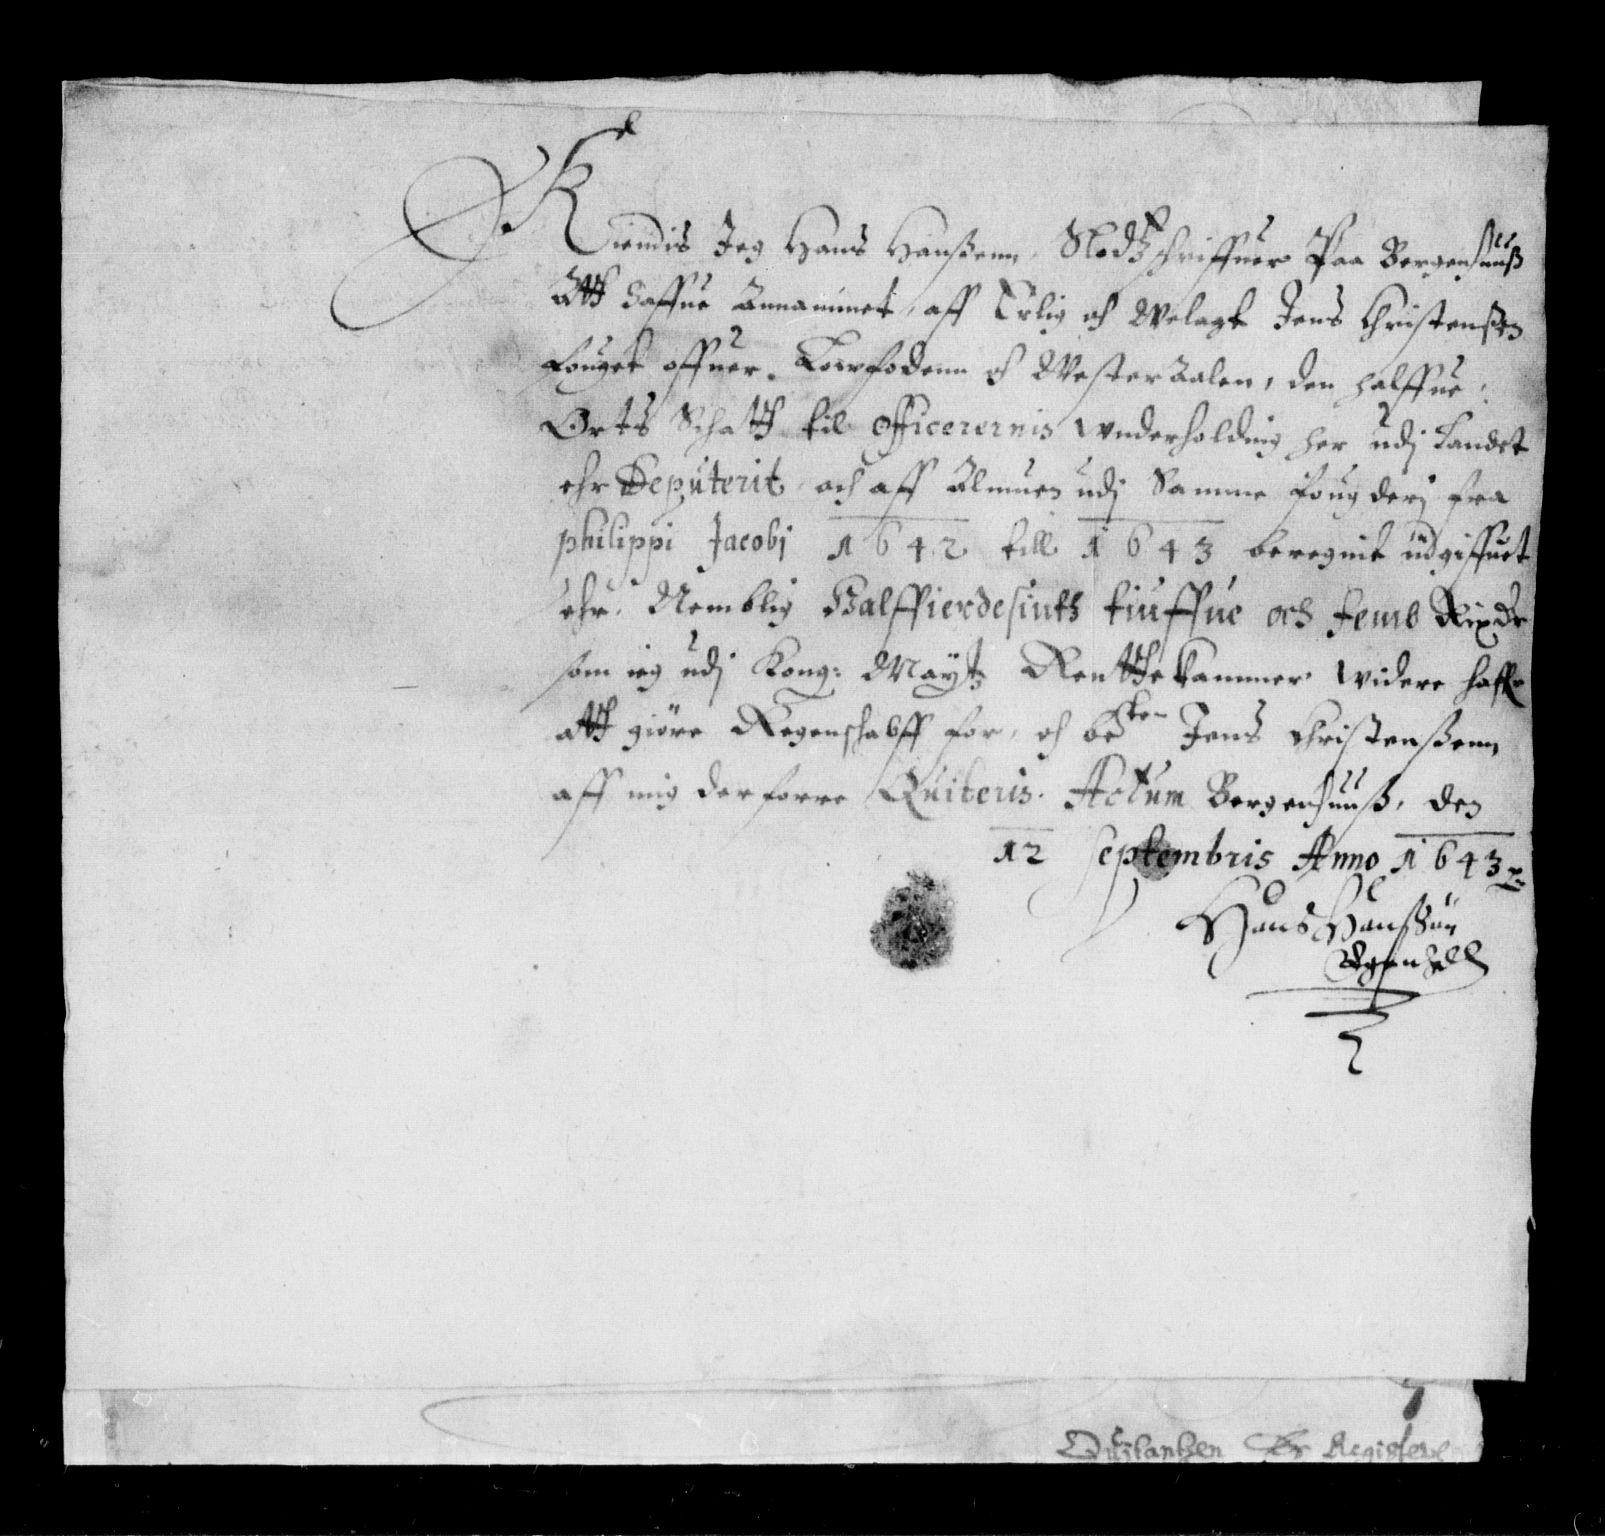 Kiendis Jeg Hans Hanßenn, Slodtzschriffuer Paa Bergenhuuß
Att Haffue Annammet, aff Erlig och Welagt Jens Christenßen
Fouget offuer, Lowfodenn och Wester Aalen, den halffue
Orts Schatt til Officerernis Wnderholding her udj Landet
ehr Deputerit, och aff Almuen udj Samme fougderj fra
philippi Jacobj 1642 till 1643 beregnit udgiffuet
ehr, Nemblig Halffierdesints tiuffue och femb Rixdr
som ieg udj Kong: Maytz Renttekammer widere haffr
att giøre Regenschabff for, och beten Jens Christenßenn
aff mig derforre Quiteris. Actum Bergenhuuß, den
12 Septembris Anno 1643
Hans Hanßøn
Egenhdh
Quitantzen Er Registerit